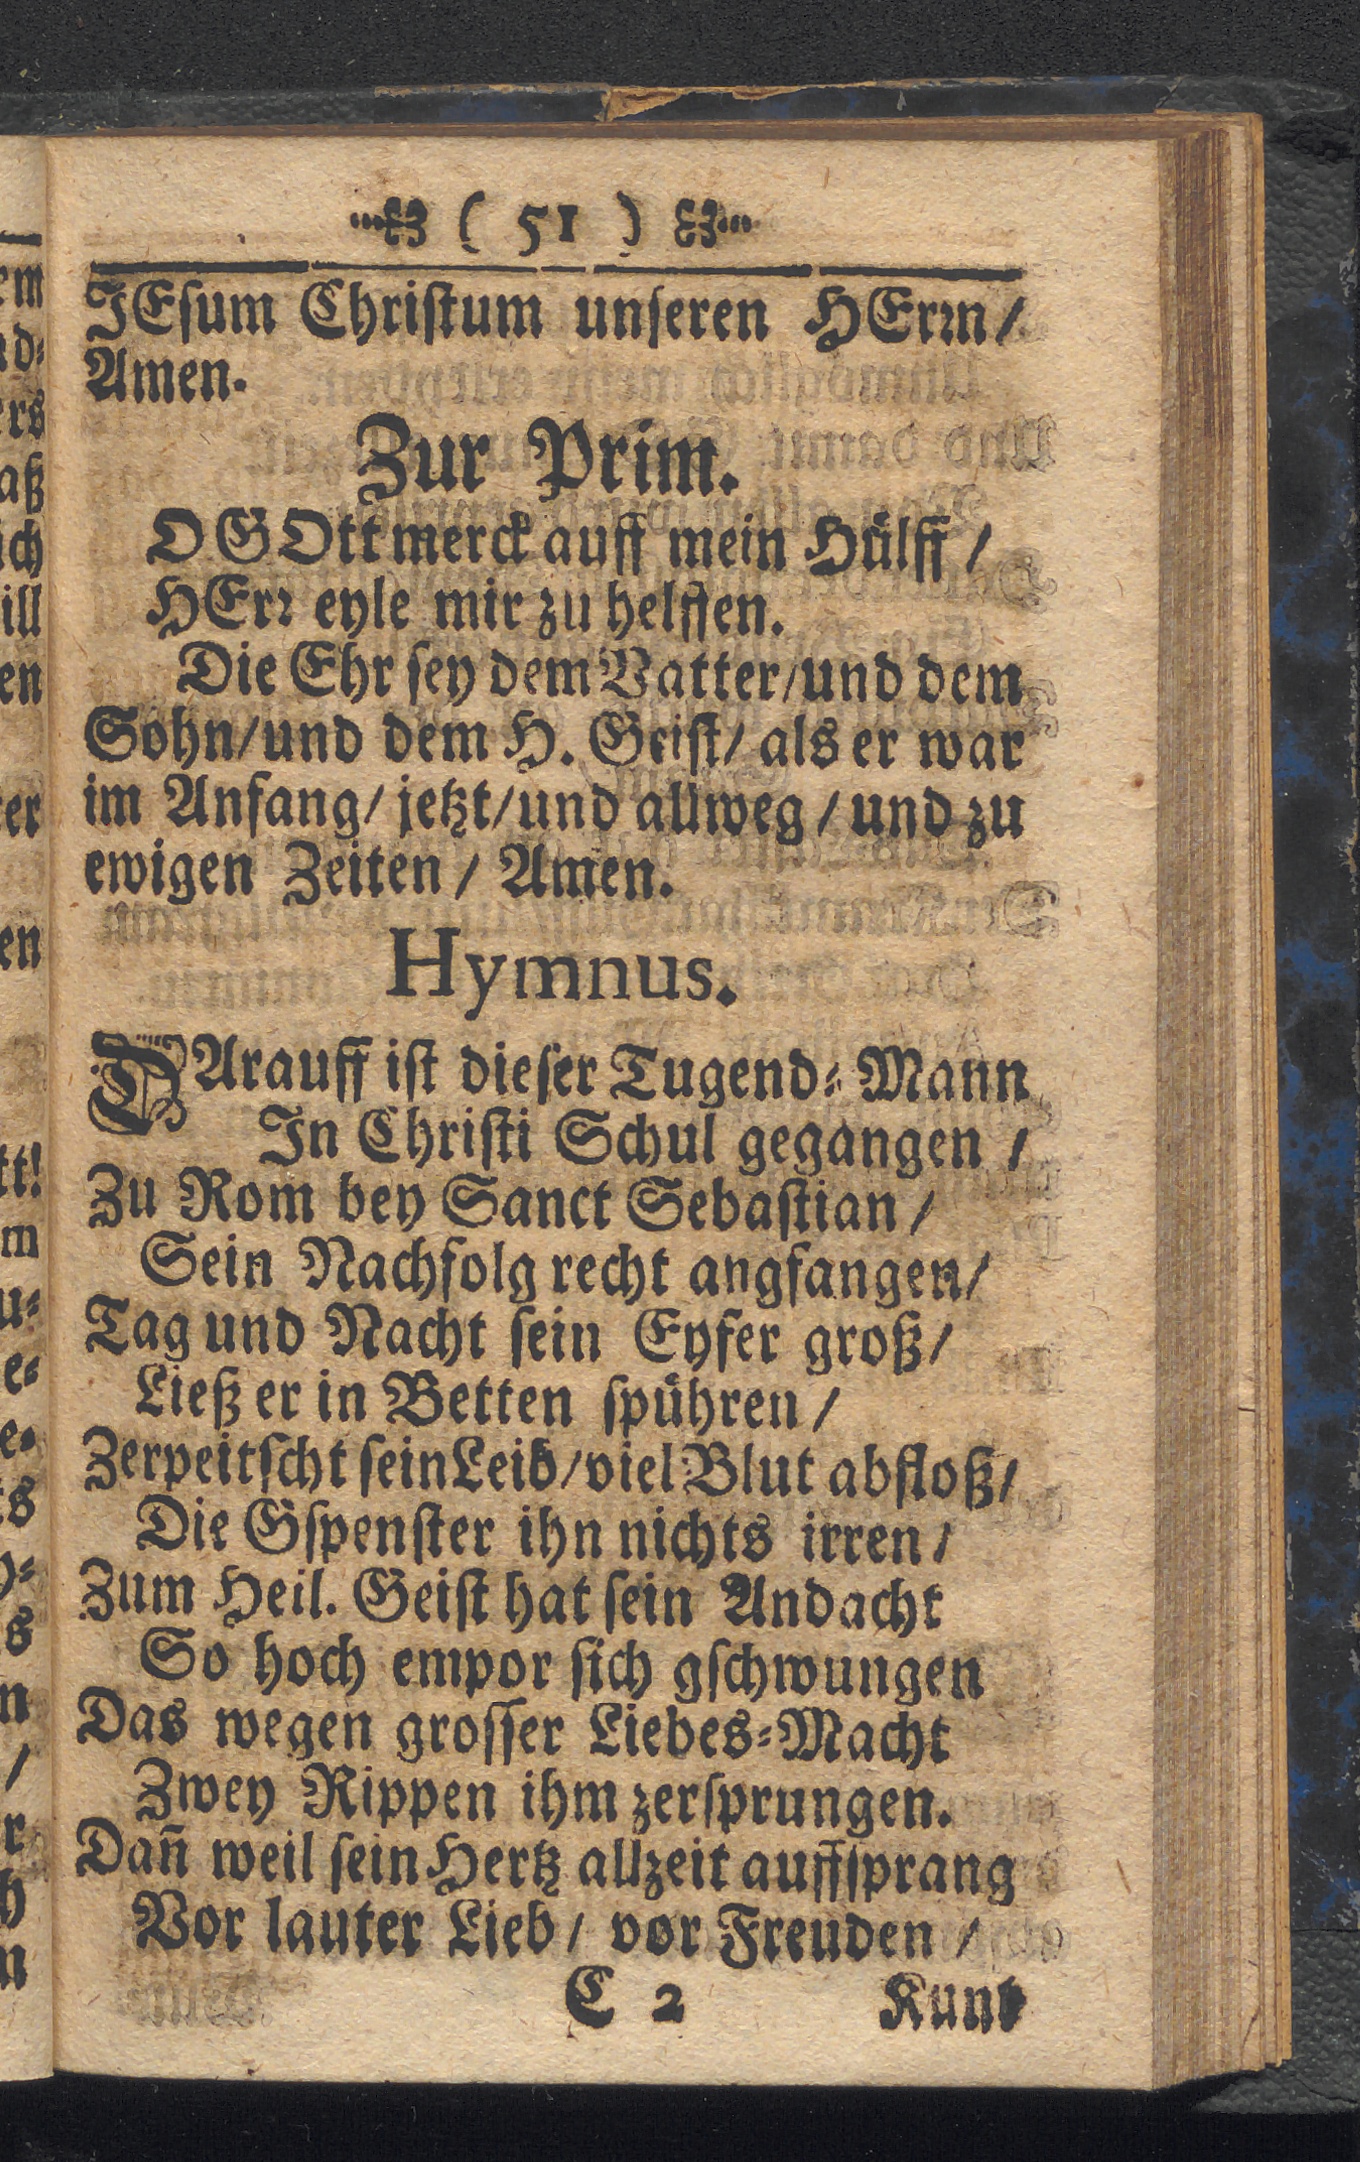 ( 51 )
JEsum Christum unseren HErrn/
Amen.
Zur Prim.
O GOtt merck auff mein Hülff /
HErr eyle mir zu helffen.
Die Ehr sey dem Vatter/und dem
Sohn/und dem H. Geist/ als er war
im Anfang/ jetzt/und allweg / und zu
ewigen Zeiten / Amen.
Hymnus.
DArauff ist dieser Tugend-Mann
In Christi Schul gegangen /
Zu Rom bey Sanct Sebastian /
Sein Nachfolg recht angfangen/
Tag und Nacht sein Eyfer groß/
Ließ er in Betten spühren /
Zerpeitscht sein Leib/viel Blut abfloß/
Die Gspenster ihn nichts irren /
Zum Heil. Geist hat sein Andacht
So hoch empor sich gschwungen
Das wegen grosser Liebes-Macht
Zwey Rippen ihm zersprungen.
Dañ weil sein Hertz allzeit auffsprang
Vor lauter Lieb / vor Freuden /
C 2 Kunt